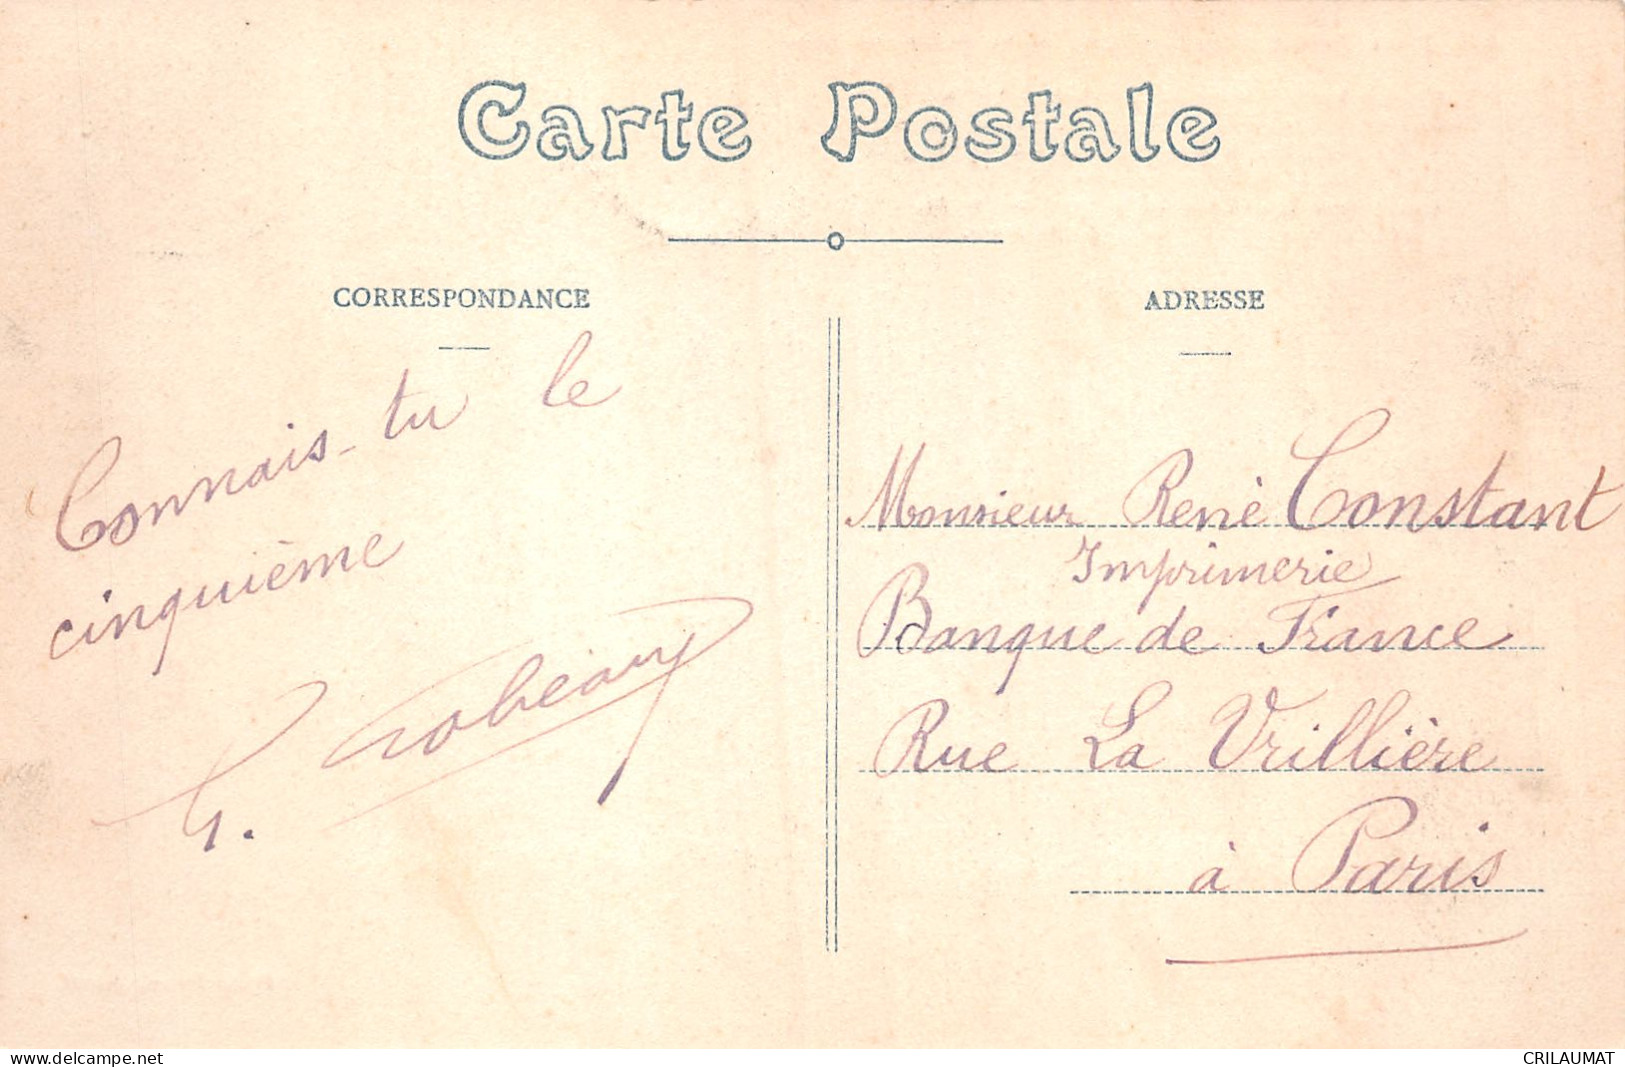 Carte Postale
CORRESPONDANCE
Connais-tu le
cinquième
G.
ADRESSE
Monsieur René Constant
Imprimerie
Banque de France
Rue La Vrillière
à Paris
www.delcampe.net
CRILAUMAT